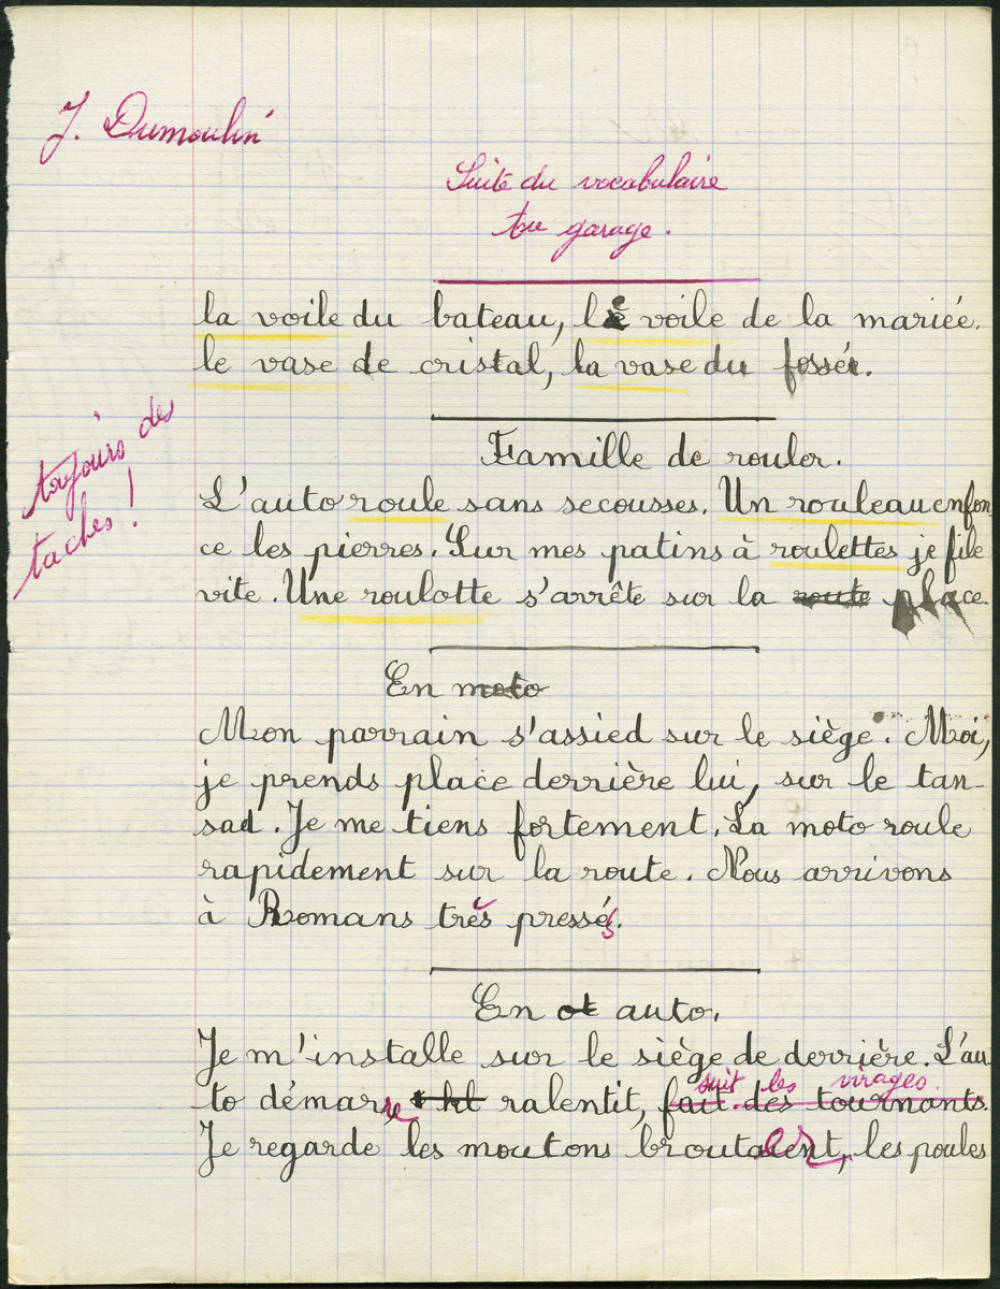 J. Dumoulin
Suite du vocabulaire
du garage.
la voile du bateau, le voile de la mariée.
le vase de cristal, la vase du fossé.
toujours des
taches !
Famille de rouler.
L'auto roule sans secousses. Un rouleau enfon
ce les pierres. Sur mes patins à roulettes je file
vite. Une roulotte s'arrête sur la route place.
En moto
Mon parrain s'assied sur le siège. Moi,
je prends place derrière lui, sur le tan-
sad. Je me tiens fortement. La moto roule
rapidement sur la route. Nous arrivons
à Romans très pressés.
En auto.
Je m'installe sur le siège de derrière. L'au
suit les virages.
to démarre ralentit, fait des tournants.
Je regarde les moutons broutent, les poules